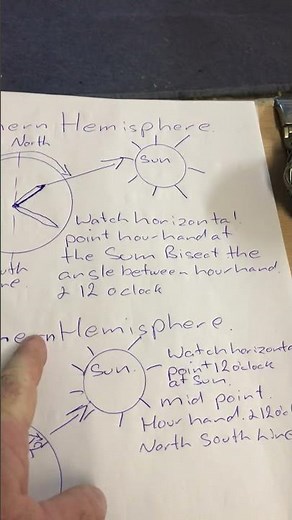 ern Hemisphere.
North
Sun
Watch horizontal.
point hour hand at
the Sum Bisect the
angle between hour hand.
& 12 oclock
uth
ne.
nern Hemisphere.
Sun.
Watch horizonta
point 12 o'clock
at Sun.
mid point.
Hour hand. & 12 o'c
North South Line